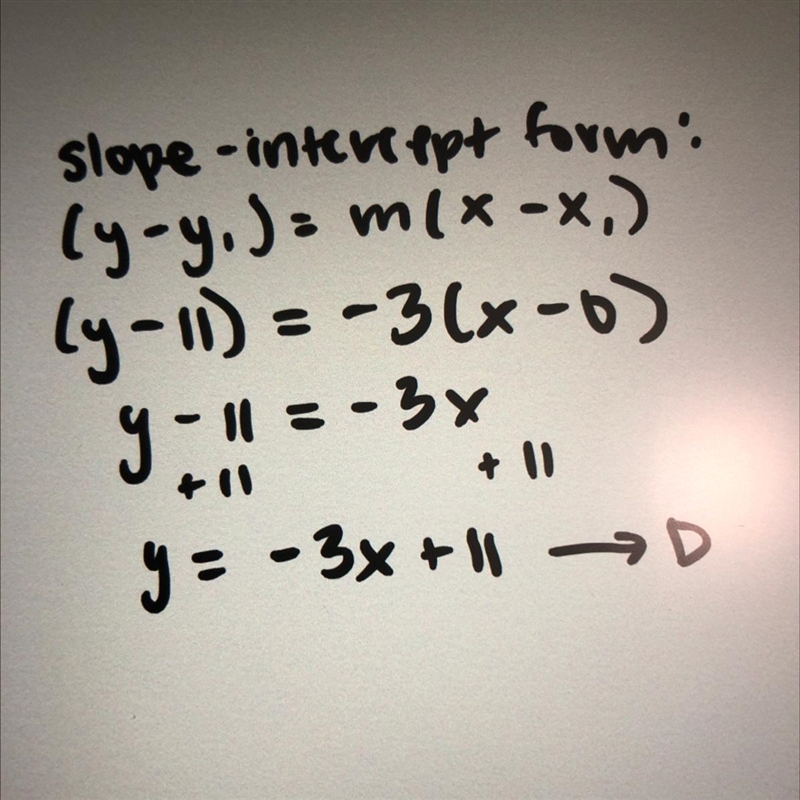 slope-intercept form:
(y-y₁) = m(x-x₁)
(y-11) = -3(x-0)
y-11 = -3x
+11 +11
y = -3x+11 → D